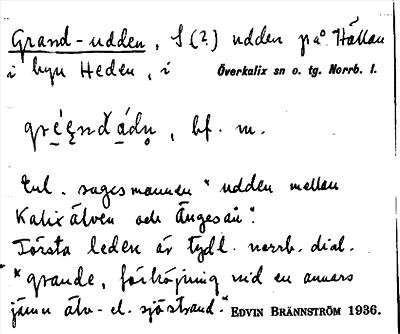 Grand-udden, S(?) udden på Hällan
i byn Heden, i Överkalix sn o. tg. Norrb. l.
bf. m.
Enl. sagesmannen "udden mellan
Kalix älven och Ängesån".
Första leden är tydl. norrb. dial.
*grande, förhöjning vid en annars
jämn älv- el. sjöstrand." EDVIN BRÄNNSTRÖM 1936.